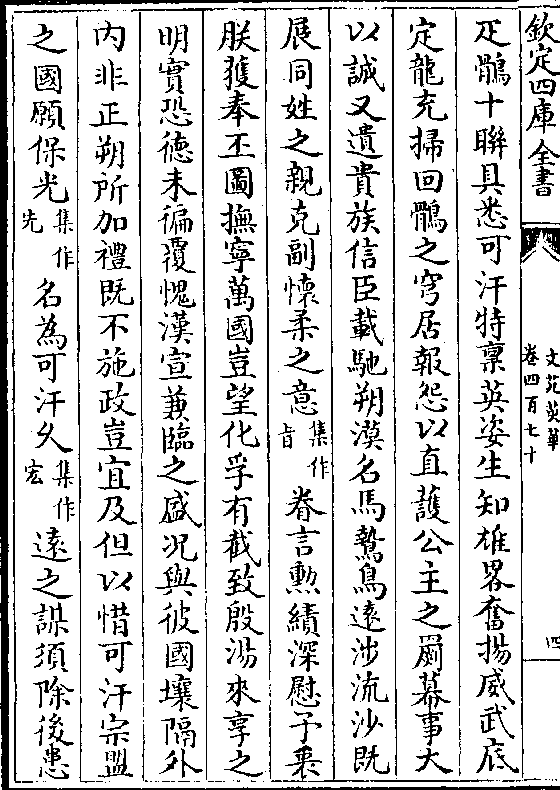 欽定四庫全書
文苑英華
卷四百七十
四
疋鶻十聯具悉可汗特稟英姿生知雄畧奮揚威武底
定龍充掃回鶻之穹居報怨以直護公主之罽幕事大
以誠又遣貴族信臣載馳朔漠名馬鷙鳥遠涉流沙既
展同姓之親克副懷柔之意集作旨眷言勲績深慰予衷
朕獲奉丕圖撫寧萬國豈望化孚有截致殷湯來享之
明實恐德未徧覆愧漢宣兼臨之盛况與彼國壤隔外
内非正朔所加禮既不施政豈宜及但以惜可汗宗盟
之國願保光集作先名為可汗久集作宏遠之謀須除後患